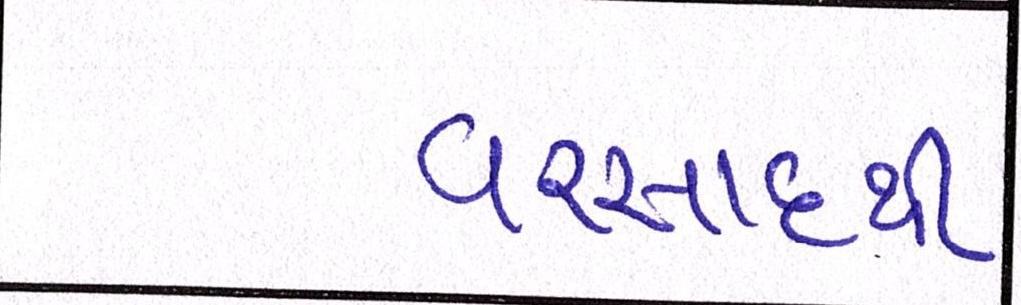 વરસાદથી